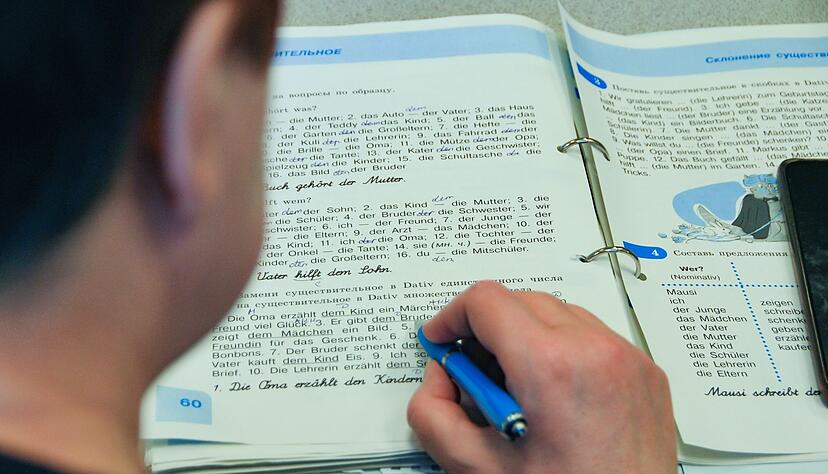 ИТЕЛЬНОЕ
на вопросы по образцу.
ört was?
— die Mutter; 2. das Auto — der Vater; 3. das Haus
dem
ern; 4. der Teddy dem das Kind; 5. der Ball den das
der Garten den die Großeltern; 7. die Hefte — die
der Kuli der die Lehrerin; 9. das Fahrrad der
die Brille — die Oma; 11. die Mütze dem der Opa;
che der die Tante; 13. der Kater den die Geschwister;
pielzeug den die Kinder; 15. die Schultasche die
16. das Bild der Bruder
Buch gehört der Mutter.
ft wem?
dem
der Sohn; 2. das Kind — die Mutter; 3. die
die Schüler; 4. der Bruder der die Schwester; 5. wir
hwester; 6. ich — der Freund; 7. der Junge — der
r — die Eltern; 9. der Arzt — das Mädchen; 10. der
das Kind; 11. ich der die Oma; 12. die Tochter — der
der Onkel — die Tante; 14. sie (мн. ч.) — die Freunde;
Kinder den die Großeltern; 16. du — die Mitschüler.
den
Vater hilft dem Sohn.
Замени существительное в Dativ единственного числа
на существительное в Dativ множественного числа.
Die Oma erzählt dem Kind ein Märchen
Freund viel Glück. 3. Er gibt dem Bruder
zeigt dem Mädchen ein Bild. 5.
Freundin für das Geschenk. 6.
Bonbons. 7. Der Bruder schenkt der
Vater kauft dem Kind Eis. 9. Ich
Brief. 10. Die Lehrerin erzählt dem
1. Die Oma erzählt den Kindern
60
Склонение существи
3
Поставь существительное в скобках в Dativ
1. Wir gratulieren ... (die Lehrerin) zum Geburtstag
hilft ... (der Freund). 3. Ich gebe ... (die Katze
Mädchen liest ... (der Bruder) eine Erzählung vor.
(das Kind) ein Bilderbuch. 6. Die Schultas
Schülerin). 7. Die Mutter dankt ... (der Gast
8. Die Kinder singen ... (das Mädchen)
9. Was willst du ... (die Freundin) schenken? 10.
... (der Opa) einen Brief. 11. Markus gibt
Puppe. 12. Das Buch gefällt
... (die Mutter) im Garten. 14.
Tricks.
4
Составь предложения
Wer?
(Nominativ)
Mausi
ich
der Junge
das Mädchen
der Vater
die Mutter
das Kind
die Schüler
die Lehrerin
die Eltern
zeigen
schreibe
schenke
geben
erzähle
kaufen
Mausi schreibt de